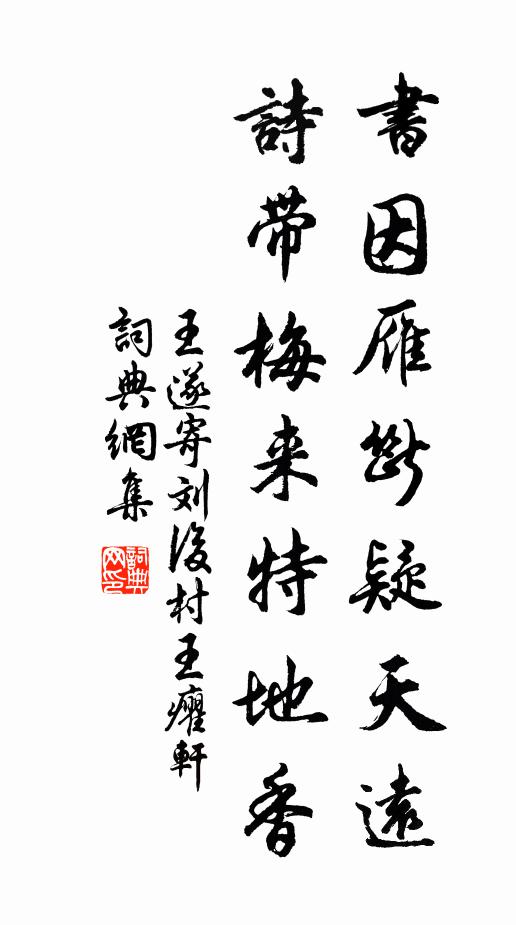 書因雁断疑天遠
詩帶梅来特地香
王遂寄刘後村王癯軒
詞典網集
詞典网印